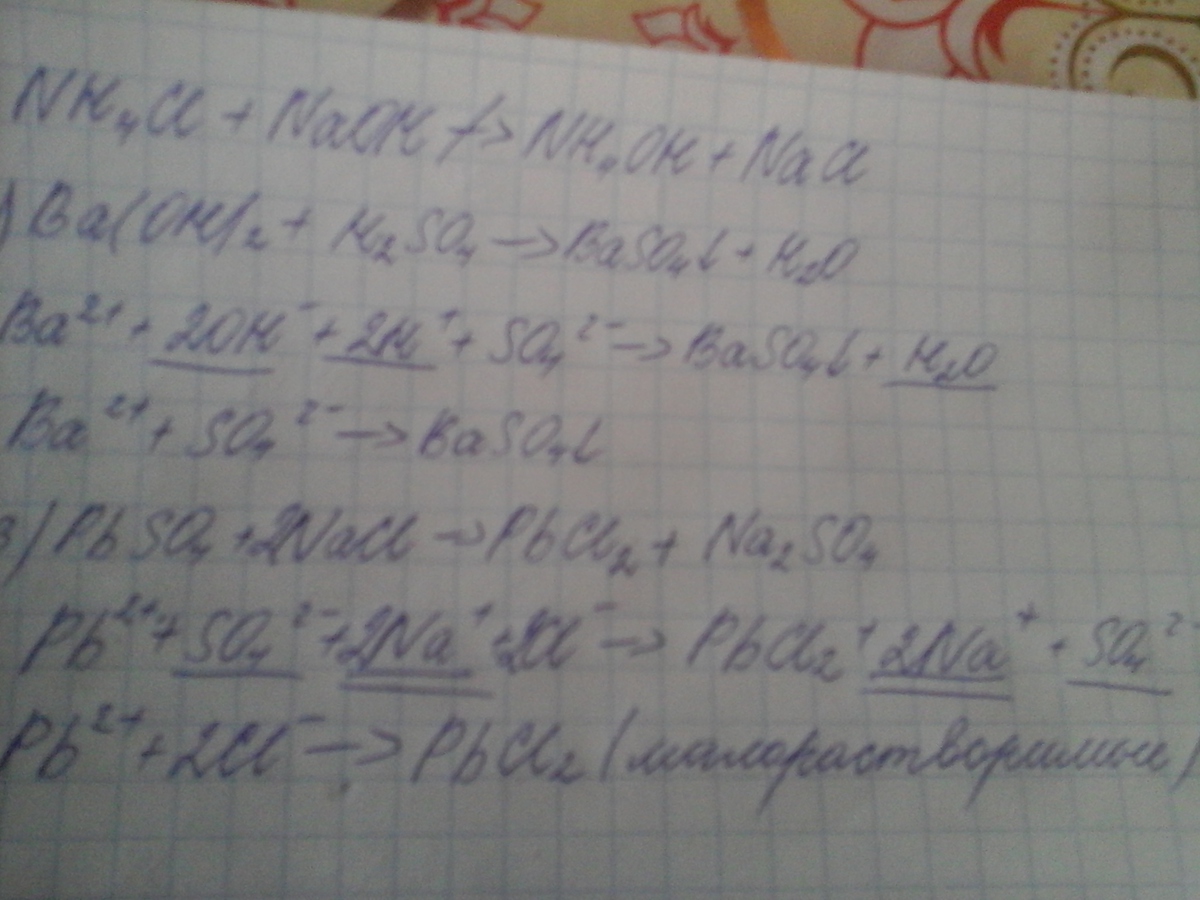 NH₄Cl + NaOH ↛ NH₄OH + NaCl
) Ba(OH)₂ + H₂SO₄ → BaSO₄↓ + H₂O
Ba²⁺ + 2OH⁻ + 2H⁺ + SO₄²⁻ → BaSO₄↓ + H₂O
Ba²⁺ + SO₄²⁻ → BaSO₄↓
3) PbSO₄ + 2NaCl → PbCl₂ + Na₂SO₄
Pb²⁺ + SO₄²⁻ + 2Na⁺ + 2Cl⁻ → PbCl₂ + 2Na⁺ + SO₄²⁻
Pb²⁺ + 2Cl⁻ → PbCl₂ (малорастворимые)